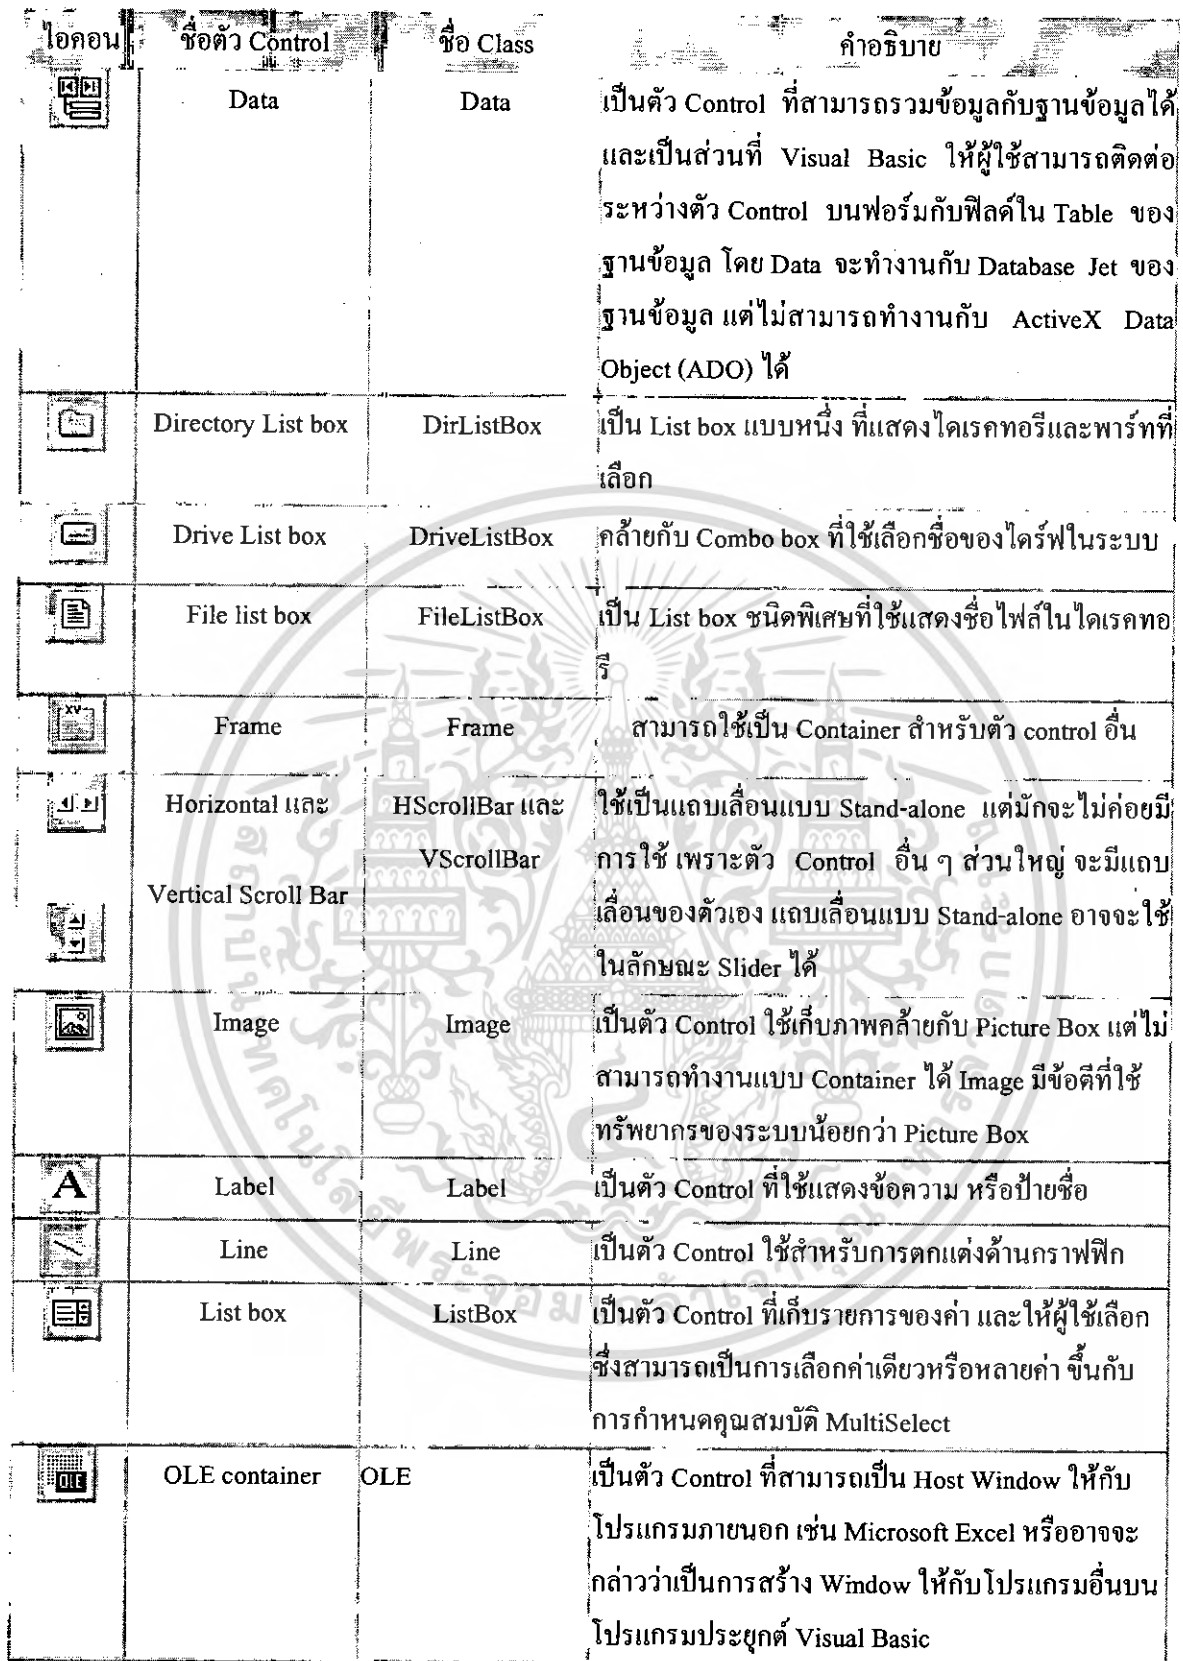 ไอคอน ชื่อตัว Control ชื่อ Class คำอธิบาย
Data Data เป็นตัว Control ที่สามารถรวมข้อมูลกับฐานข้อมูลได้
และเป็นส่วนที่ Visual Basic ให้ผู้ใช้สามารถติดต่อ
ระหว่างตัว Control บนฟอร์มกับฟิลด์ใน Table ของ
ฐานข้อมูล โดย Data จะทำงานกับ Database Jet ของ
ฐานข้อมูล แต่ไม่สามารถทำงานกับ ActiveX Data
Object (ADO) ได้
Directory List box DirListBox เป็น List box แบบหนึ่ง ที่แสดงไดเรคทอรีและพาร์ทที่
เลือก
Drive List box DriveListBox คล้ายกับ Combo box ที่ใช้เลือกชื่อของไดร์ฟในระบบ
File list box FileListBox เป็น List box ชนิดพิเศษที่ใช้แสดงชื่อไฟล์ในไดเรคทอ
รี
Frame Frame สามารถใช้เป็น Container สำหรับตัว control อื่น
Horizontal และ HScrollBar และ ใช้เป็นแถบเลื่อนแบบ Stand-alone แต่มักจะไม่ค่อยมี
VScrollBar การใช้ เพราะตัว Control อื่น ๆ ส่วนใหญ่ จะมีแถบ
Vertical Scroll Bar เลื่อนของตัวเอง แถบเลื่อนแบบ Stand-alone อาจจะใช้
ในลักษณะ Slider ได้
Image Image เป็นตัว Control ใช้เก็บภาพคล้ายกับ Picture Box แต่ไม่
สามารถทำงานแบบ Container ได้ Image มีข้อดีที่ใช้
ทรัพยากรของระบบน้อยกว่า Picture Box
A Label Label เป็นตัว Control ที่ใช้แสดงข้อความ หรือป้ายชื่อ
Line Line เป็นตัว Control ใช้สำหรับการตกแต่งด้านกราฟฟิก
List box ListBox เป็นตัว Control ที่เก็บรายการของค่า และให้ผู้ใช้เลือก
ซึ่งสามารถเป็นการเลือกค่าเดียวหรือหลายค่า ขึ้นกับ
การกำหนดคุณสมบัติ MultiSelect
OLE OLE container OLE เป็นตัว Control ที่สามารถเป็น Host Window ให้กับ
โปรแกรมภายนอก เช่น Microsoft Excel หรืออาจจะ
กล่าวว่าเป็นการสร้าง Window ให้กับโปรแกรมอื่นบน
โปรแกรมประยุกต์ Visual Basic